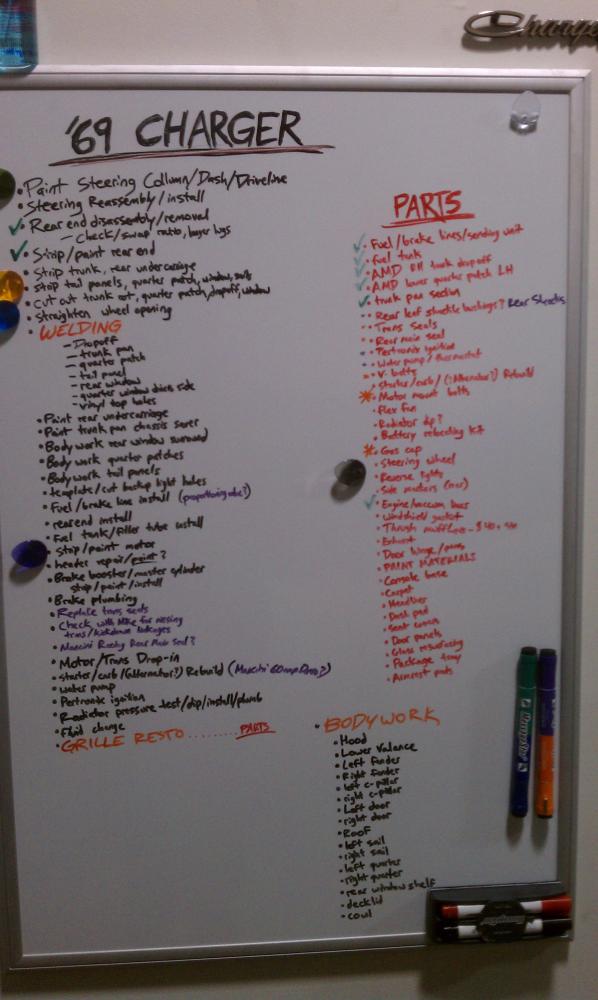 Charger
'69 CHARGER
• Paint Steering Collumn/Dash/Driveline
• Steering Reassembly/install
✓• Rear end disassembly/removal
– Check/swap ratio, buyer lugs
✓• Strip/paint rear end
• Strip trunk, rear undercarriage
• stop tail panels, quarter patch, window, sails
• Cut out trunk ext, quarter patch, dropoff, window
• straighten wheel opening
• WELDING
– Dropoff
– trunk pan
– quarter patch
– tail panel
– rear window
– quarter window side
– vinyl top holes
• Paint rear undercarriage
• Paint trunk pan chassis saver
• Body work rear window surround
• Body work quarter patches
• Body work tail panels
• template/cut backup light holes
• Fuel/brake line install (proportioning valve?)
• rear end install
• Fuel tank/filler tube install
• Strip/paint motor
• header repair/paint?
• Brake booster/master cylinder
strip/paint/install
• Brake plumbing
• Replace trans seals
• Check with Mike for missing
trans/kickdown linkages
• Mancini Racing Rear Main Seal?
• Motor/Trans Drop-in
• starter/carb/(alternator?) Rebuild (Mancini 60 amp?)
• water pump
• Pertronix ignition
• Radiator pressure test/dip/install/plumb
• Fluid change
• GRILLE RESTO ........ PARTS
PARTS
✓• Fuel/brake lines/sending unit
✓• fuel tank
✓• AMD RH trunk dropoff
✓• AMD lower quarter patch LH
✓• trunk pan section
• Rear leaf shackle bushings? Rear Shackles
• Trans seals
• Rear main seal
• Pertronix ignition
• Water pump/thermostat
• V-belts
• starter/carb/(Alternator?) Rebuild
• Motor mount bolts
• Flex fan
• Radiator dip?
• Battery relocating kit
• Gas cap
• Steering wheel
• Reverse lights
• Side markers (rear)
✓• Engine/vacuum hoses
• windshield gasket
• Thrush mufflers – $40
• Exhaust
• Door hinge/pins
• PAINT MATERIALS
• Console base
• Carpet
• Headliner
• Dash pad
• Seat covers
• Door panels
• Glass resurfacing
• Package tray
• Armrest pads
• BODYWORK
• Hood
• Lower Valance
• Left fender
• Right fender
• left c-pillar
• right c-pillar
• Left door
• right door
• Roof
• left sail
• right sail
• left quarter
• right quarter
• rear window shelf
• decklid
• cowl